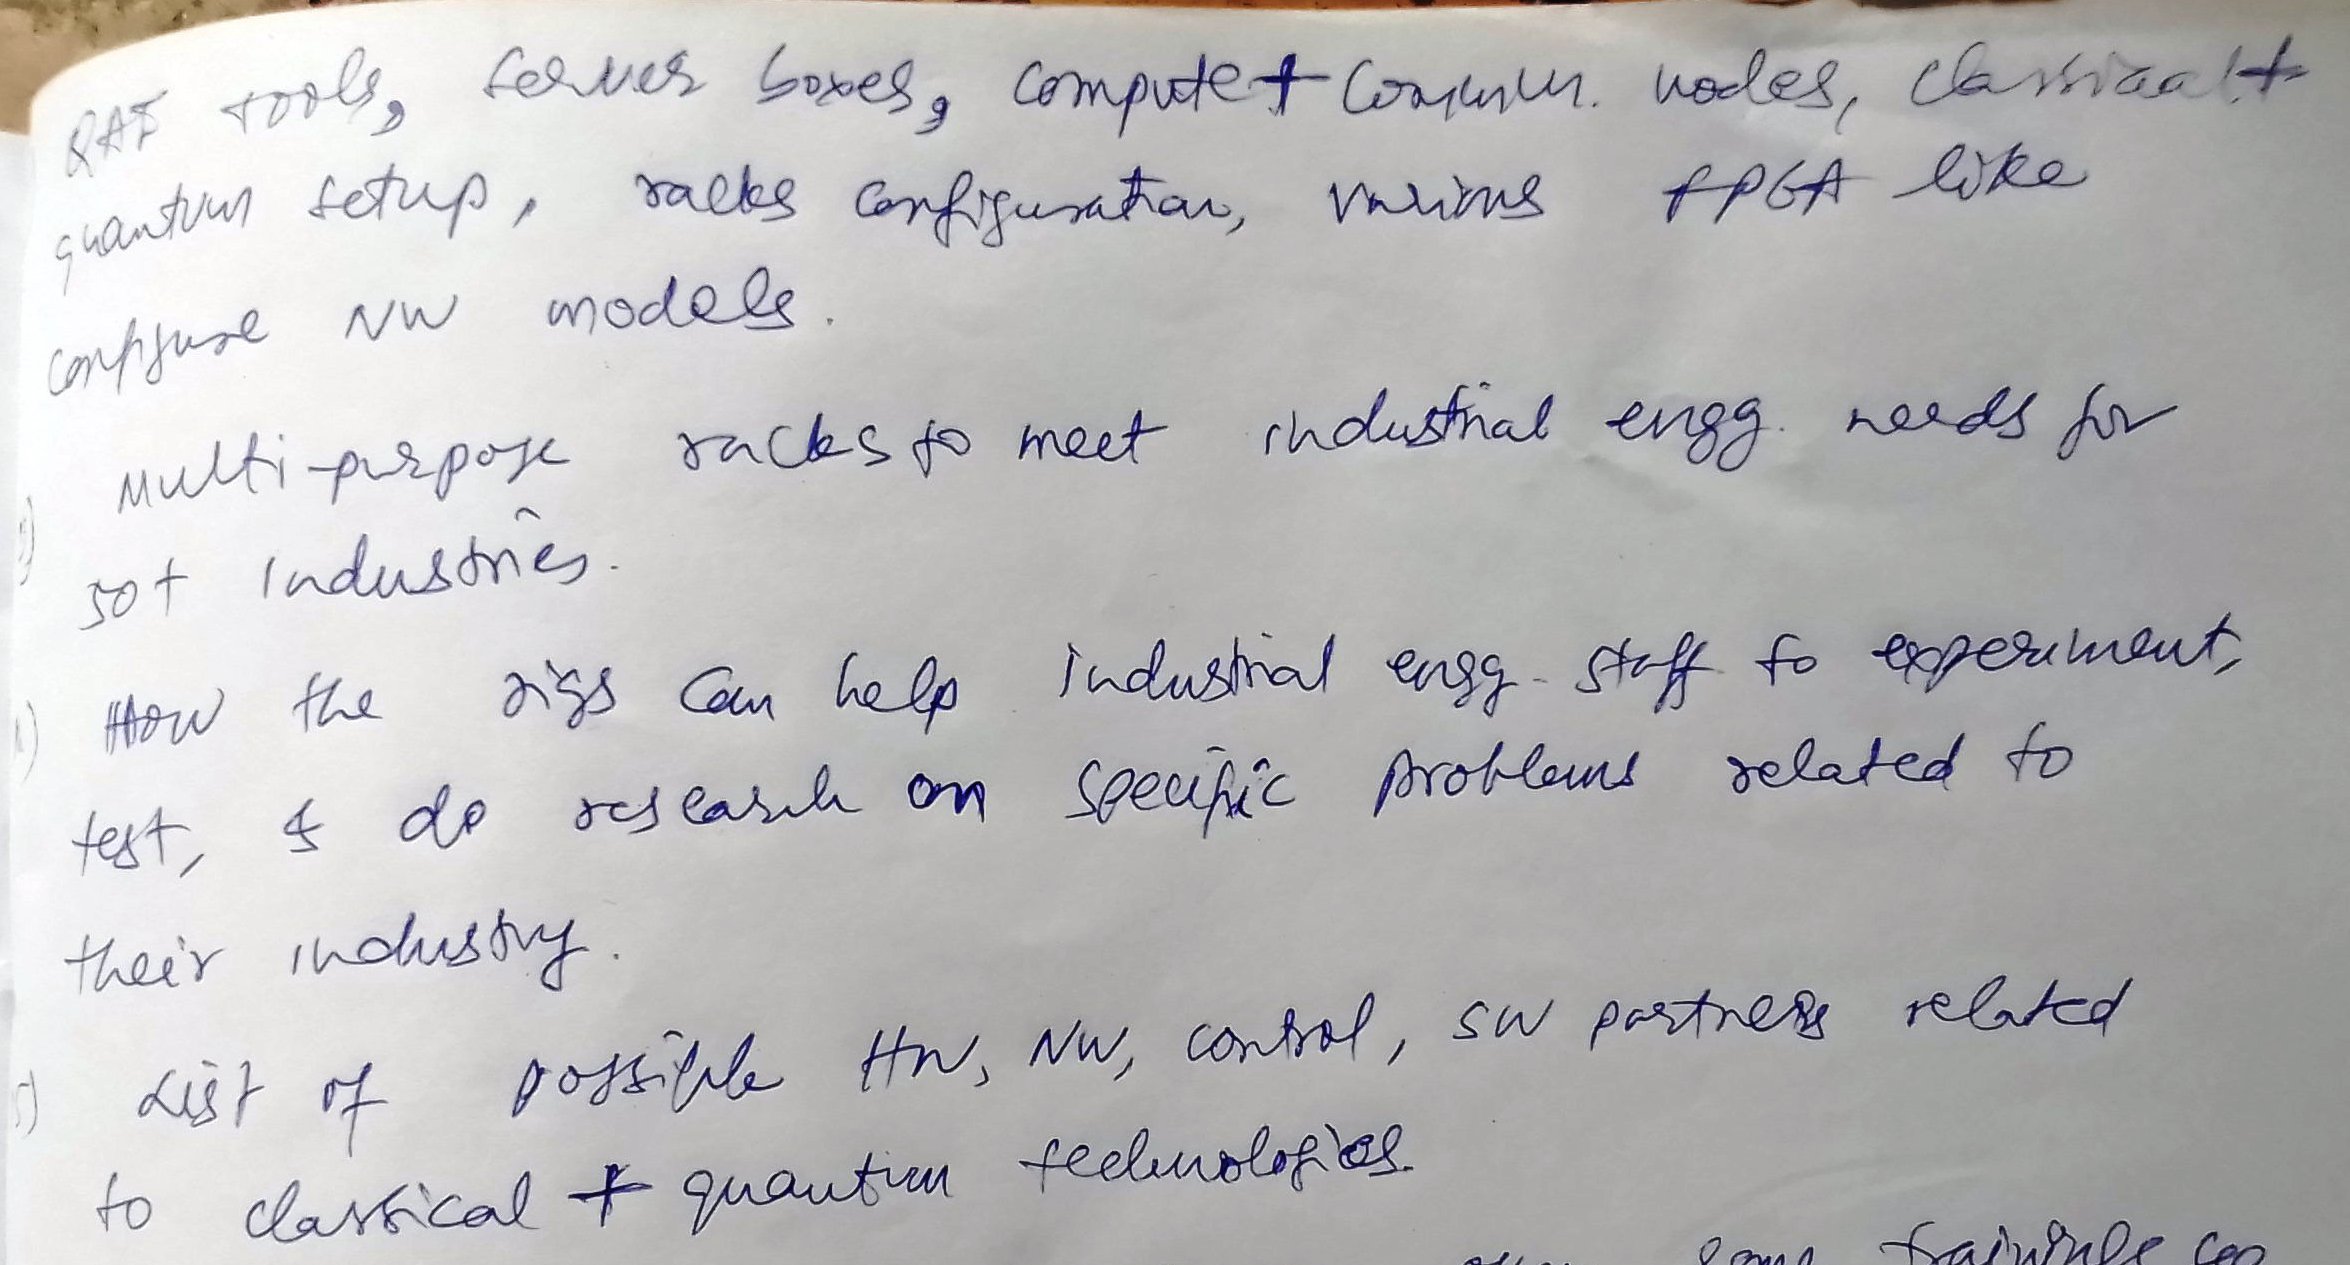 QAI tools, server boxes, compute + commun. nodes, classical +
quantum setup, racks configuration, various FPGA like
configure NW models.
3) Multi-purpose racks to meet industrial engg. needs for
50+ industries.
4) How the rigs can help industrial engg. staff to experiment,
test, & do research on specific problems related to
their industry.
5) List of possible HW, NW, control, SW partners related
to classical + quantum technologies.
some trainings